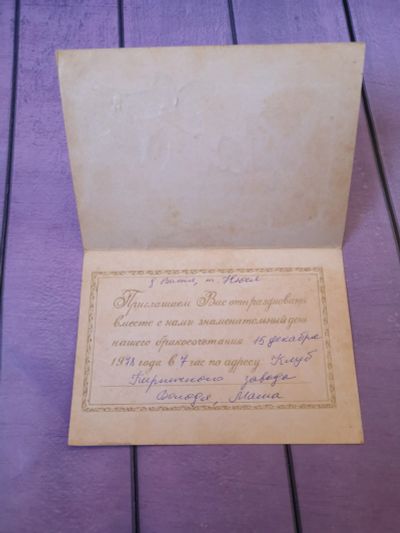 Приглашаем Вас отпраздновать
вместе с нами знаменательный день
нашего бракосочетания 15 декабря
1978 года в 7 час по адресу Клуб
Кирпичного завода
Володя, Маша